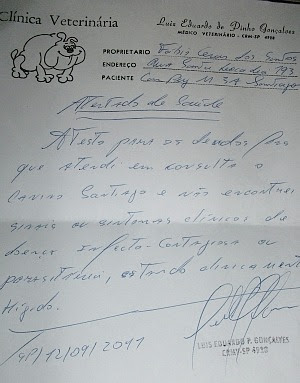 Clínica Veterinária
Luis Eduardo de Pinho Gonçalves
MÉDICO VETERINÁRIO - CRM-SP 4920
PROPRIETARIO Fabio Cesar dos Santos
ENDEREÇO Rua Santa
PACIENTE M 3A Santiago
Atestado de Saúde
Atesto para os devidos fins
que atendi em consulta o
canino Santiago e não encontrei
sinais ou sintomas clínicos de
doença infecto-contagiosa ou
parasitária, estando clinicamente
Hígido.
SP/12/09/2011
LUIS EDUARDO P. GONÇALVES
CRMV-SP 4920